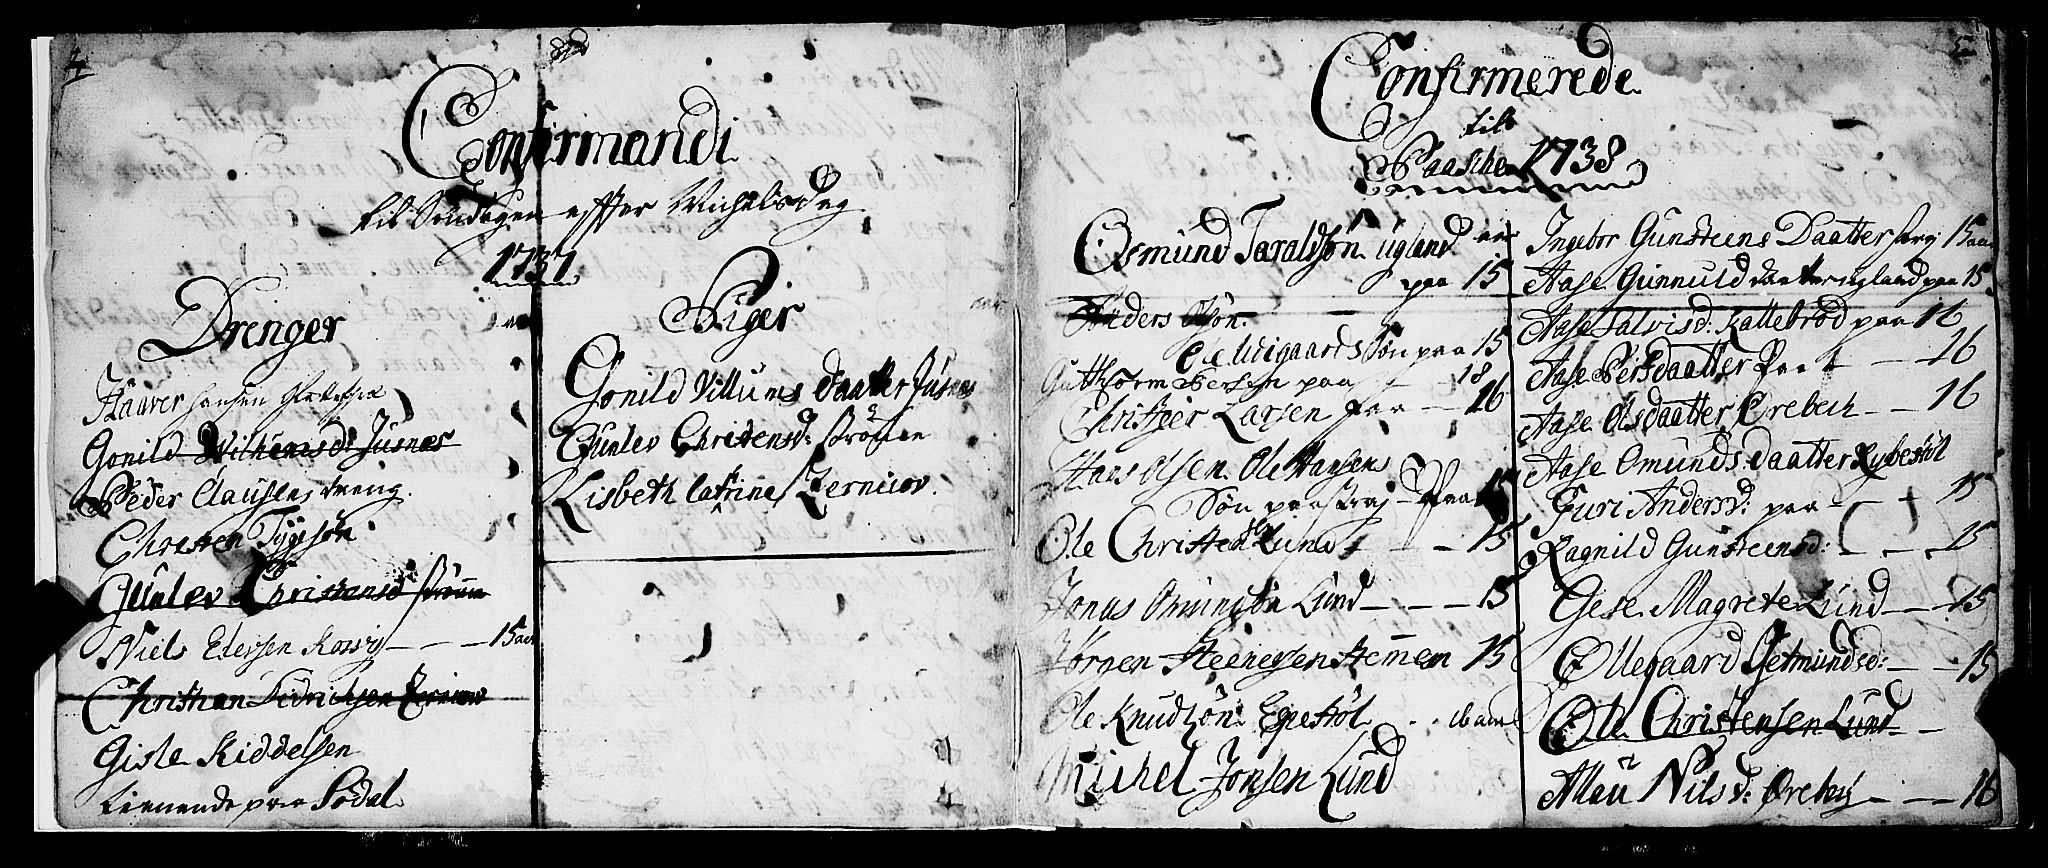 4
Confirmandi
til Søndagen effter Michelsdag
1737.
Drenger
Haaver Hansen
Gonild Wilhemsd: Jusnæs
Peder Clausens dreng.
Christen Tygesøn
Gunlev Christensd Strømme
Niels Edessen Kosvig - - - 15 aar
Christhan Didrichsen Zernicov
Gisle Kiddelsen
tienende paa Sødal
Piger
Gonild Villums Daatter Jusnes
Gunlev Christensd: Strømme
Lisbeth Catrina Zernicov.
5
Confirmerede
til
Paasche 1738
Osmund Taraldsøn Ugland
paa 15
Anders Olsøn.
Ole Udigaards Søn paa 15
Gutthorm Persen paa - - 18
Christfer Larsen paa - - 16
Hans Olsen. Ole Hansens
Søn paa - paa 15
Ole Christens: Lund - - - 15
Jonas Omundsøn Lund - - - 15
Jørgen Steenersen Stemmen 15
Ole Knudsøn Egestøl
Michel Jonsen Lund
Ingebor Gunsteens Daatter 15 aar
Aase Gunnuld daatter Ugland paa 15
Aase Salvisd: Kallebrod paa 16
Aase Persdaatter paa - - 16
Aase Olsdaatter Ørebech - - 16
Aase Omunds daatter Rybestøl
Juri Andersd: paa - - 15
Ragnild Gunsteensd: - - - 15
Gese Magrete Lund - - 15
Ollegaard Getmundsd: - - 15
Ole Christensen Lund -
Allau Nilsd: Ørebeg - - - 16